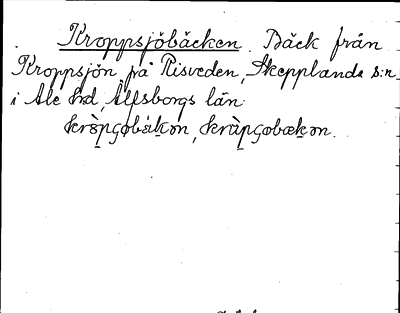 Kroppsjöbäcken. Bäck från
Kroppsjön på Risveden, Skepplanda s:n
i Ale hd, Älfsborgs län.